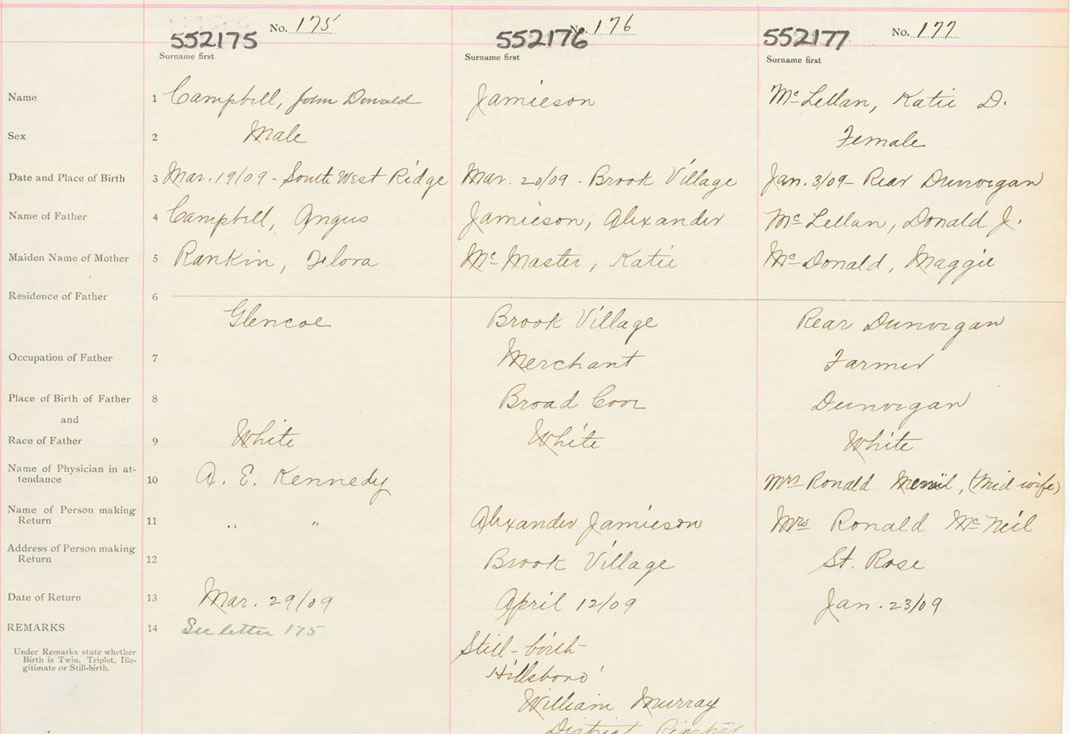 No. 175 No. 176 No. 177
552175 552176 552177
Surname first Surname first Surname first
Name 1 Campbell, John Donald Jamieson McLellan, Katie D.
Sex 2 Male Female
Date and Place of Birth 3 Mar. 19/09 - South West Ridge Mar. 20/09 - Brook Village Jan. 3/09 - Rear Dunvegan
Name of Father 4 Campbell, Angus Jamieson, Alexander McLellan, Donald J.
Maiden Name of Mother 5 Rankin, Flora McMaster, Katie McDonald, Maggie
Residence of Father 6
Glencoe Brook Village Rear Dunvegan
Occupation of Father 7 Merchant Farmer
Place of Birth of Father 8 Broad Cove Dunvegan
and
Race of Father 9 White White White
Name of Physician in at-
tendance 10 A. E. Kennedy Mrs Ronald (Mid wife)
Name of Person making
Return 11 " " Alexander Jamieson Mrs Ronald McNeil
Address of Person making
Return 12 Brook Village St. Rose
Date of Return 13 Mar. 29/09 April 12/09 Jan. 23/09
REMARKS 14 See letter 175 Still-birth
Under Remarks state whether
Birth is Twin, Triplet, Ille-
gitimate or Still-birth.
Hillsboro'
William Murray
District